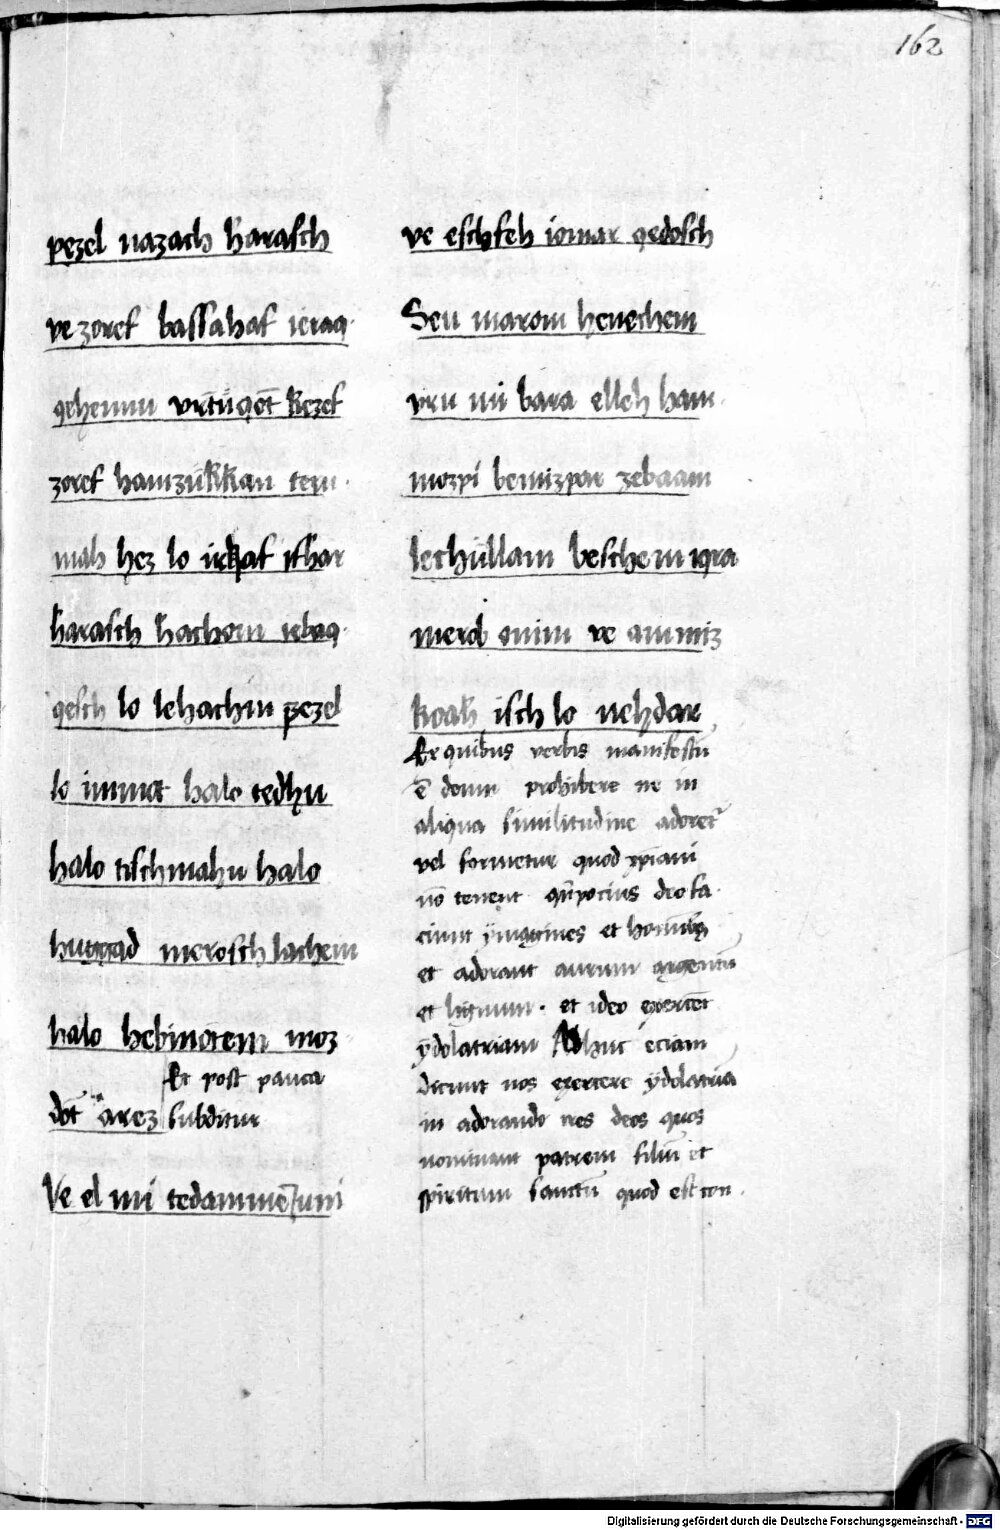 162
pezel nazach harasch
ve zoref bassahaf ieraq·
qehennu vrtuqot kezef
zoref hamzukkan teru·
mah hez lo irkaf ifhar
harasch hachom iebaq·
qesch lo lehachin pezel
lo immot halo tedhu
halo tischmahu halo
huggad merosch lachem
halo hebinotem moz
Et post pauca
dot arez subditur
Ve el mi tedammeiuni
ve eschfeh iomar qedosch
Seu marom henechem
vru mi bara elleh ham·
mozpi bemizpar zebaam
lechullam beschem iqra
merob onim ve ammiz
koah isch lo nehdar
Ex quibus verbis manifestū
ē deum prohibere ne in
aliqua similitudine adoret᷑
vel formetur quod xp̄iani
nō tenent qn̄ pocius deo fa·
ciunt ymagines et hominibꝫ
et adorant aurum argentū
et lignum· et ideo exercēt
ydolatriam Adhuc eciam
dicunt nos exercere ydolatriā
in adorando tres deos quos
nominant patrem filiū et
spiritum sanctū quod est con·
Digitalisierung gefördert durch die Deutsche Forschungsgemeinschaft - DFG